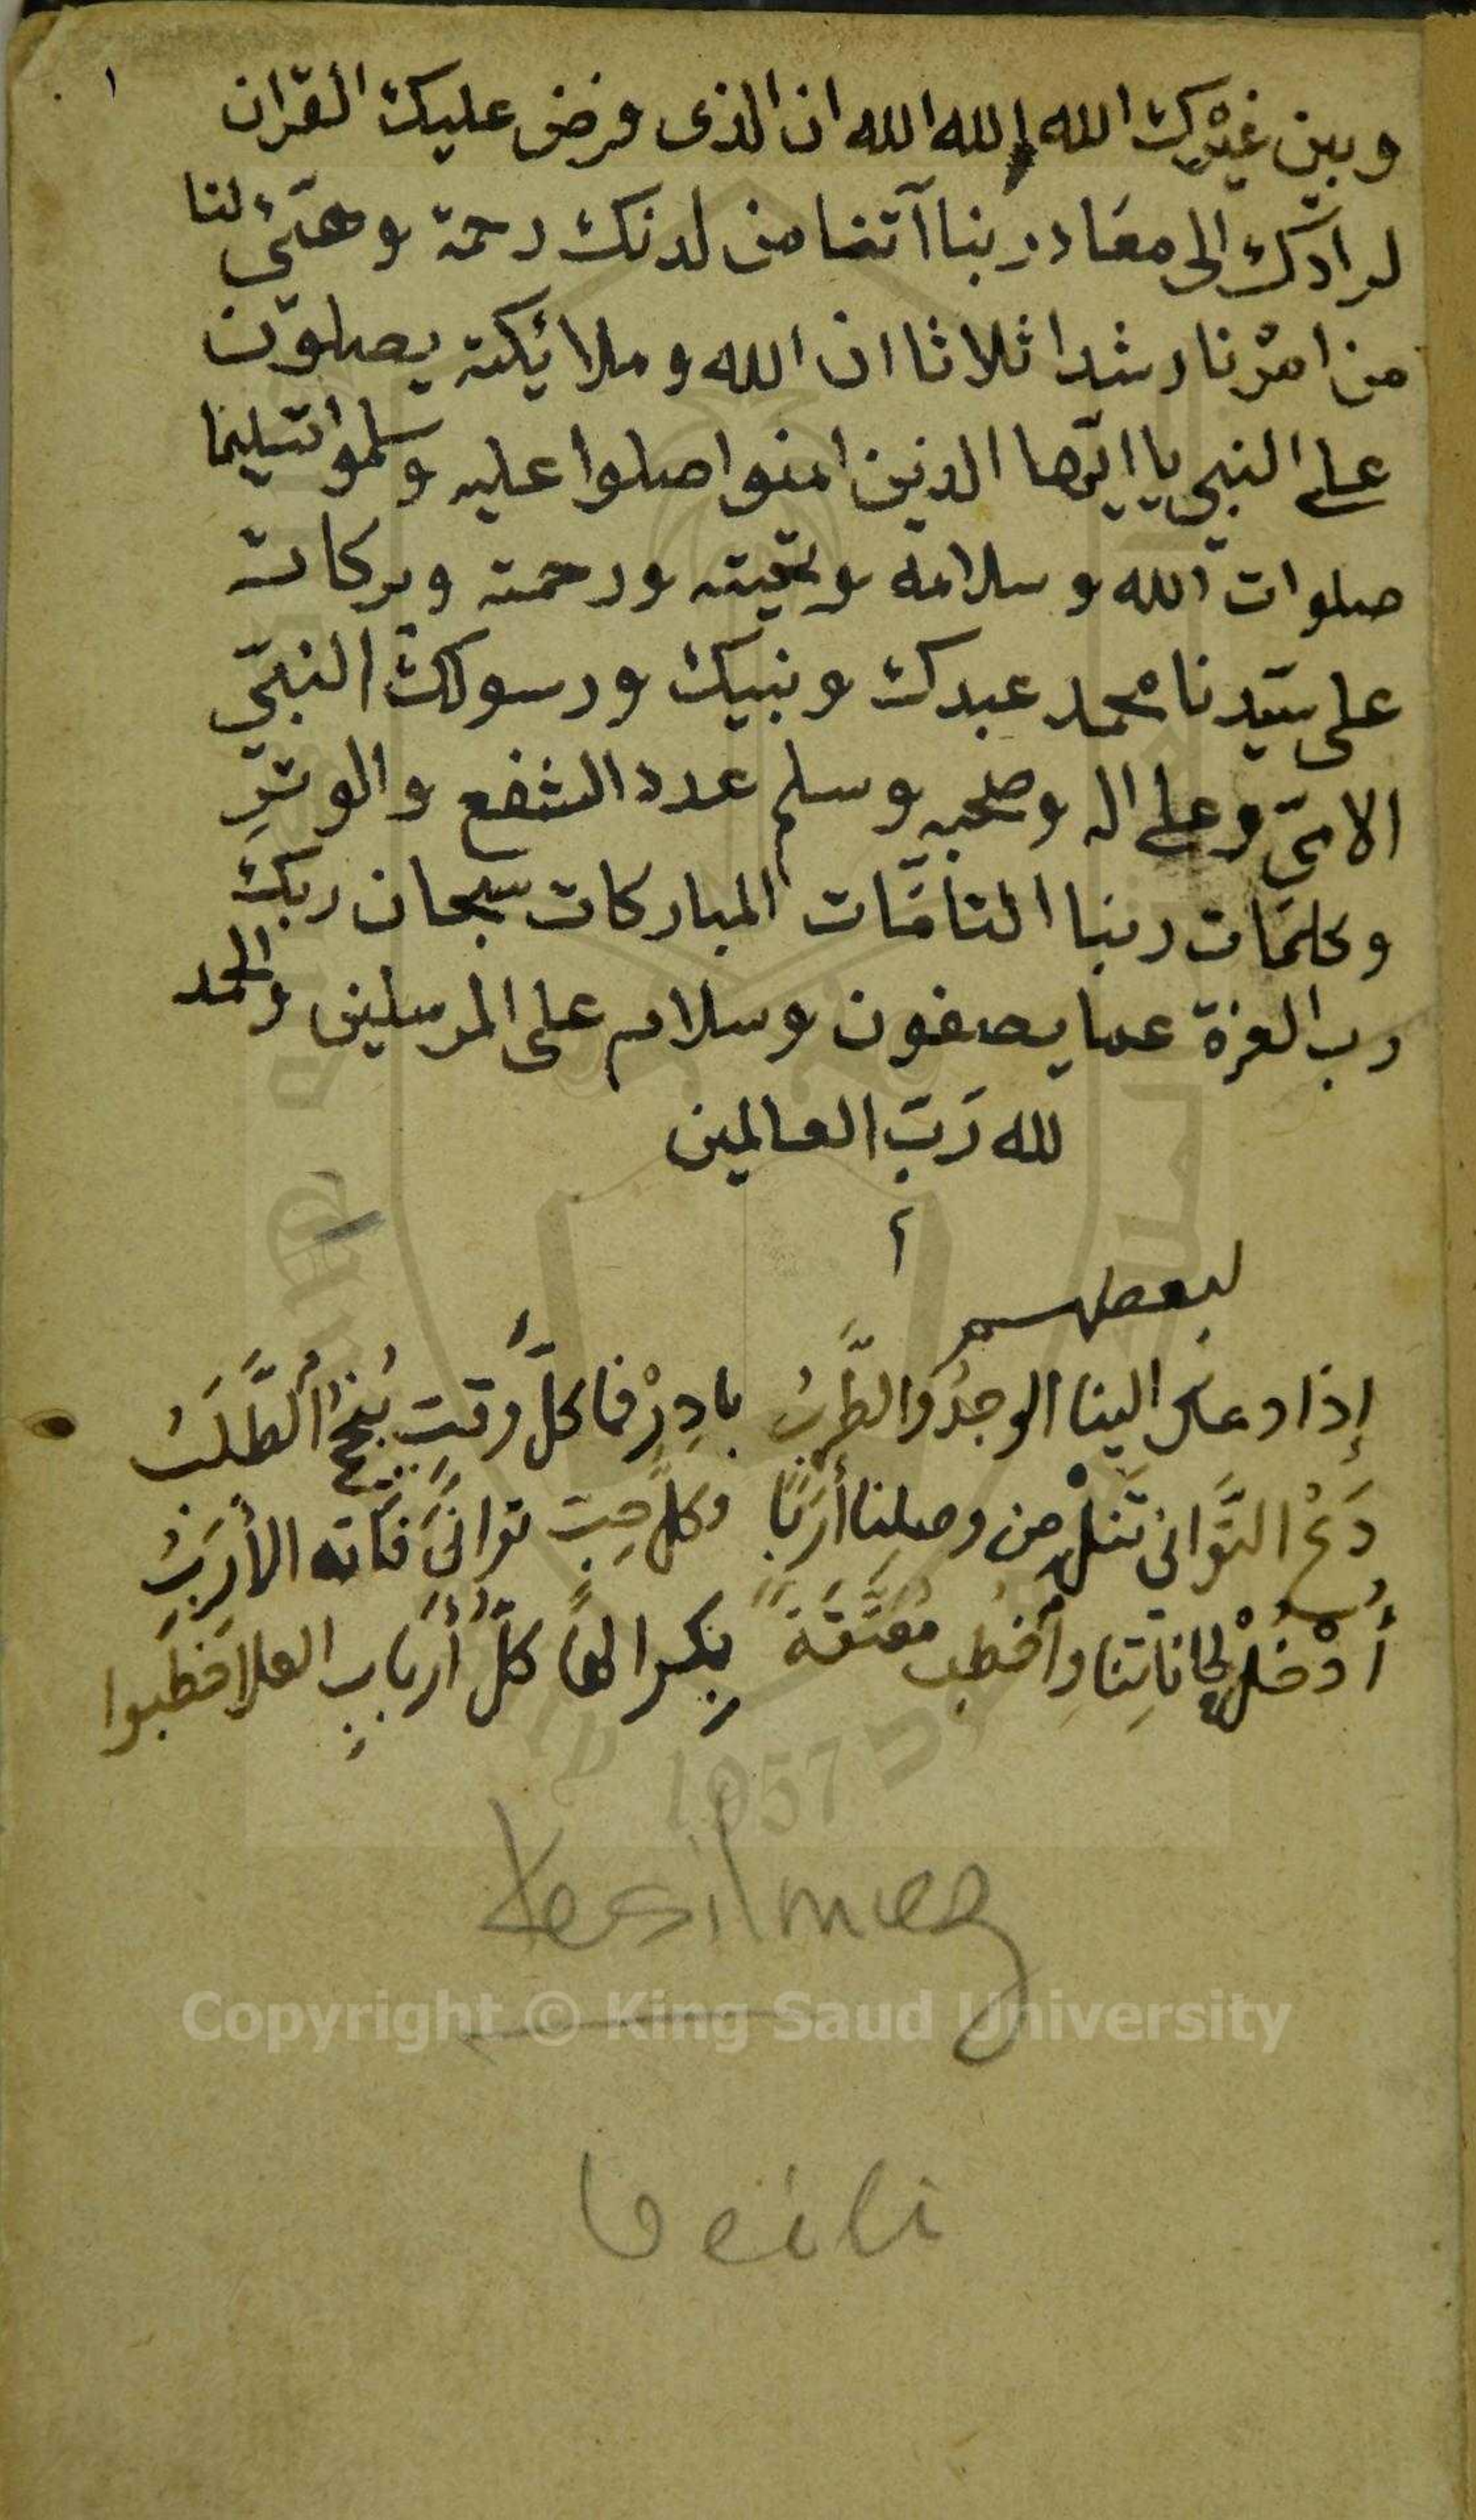 ١
وبين غيرك الله الله الله ان الذى فرض عليك القران
لرادّك الى معاد ربنا آتنا من لدنك رحمة وهيّئ لنا
من امرنا رشدا ثلاثا ان الله وملائكته يصلون
على النبي يا ايّها الذين امنوا صلوا عليه وسلموا تسليما
صلوات الله وسلامه وتحيته ورحمته وبركاته
على سيّدنا محمد عبدك ونبيك ورسولك النبيّ
الاميّ وعلى اله وصحبه وسلم عدد الشفع والوترِ
وكلمات ربنا التامّات المباركات سبحان ربك
رب العزة عما يصفون وسلام على المرسلين والحمد
لله رَبّ العالمين
لبعضهم
إذا دعاك الينا الوجدُ والطَّربُ بادِرْ فما كلَّ وقتٍ يُنجحُ الطَّلَبُ
دَعْ التَّواني تَنلْ من وصلنا أرَبًا وكلّ حِبّ توانىَ فَاته الأرَبُ
أُدْخُلْ لحاناتِنا واخطب مُعتَّقَةً بِكرا لها كلُّ أربابِ العلا خطَبوا
1957
Kesilmez
Copyright © King Saud University
Veili